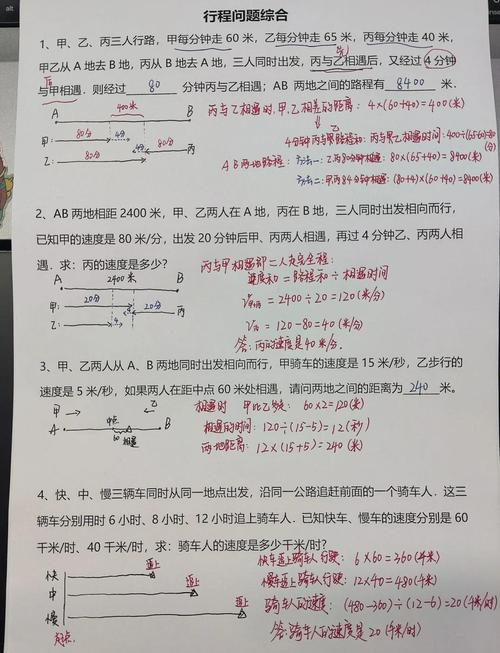 alt
行程问题综合
1、甲、乙、丙三人行路，甲每分钟走 60 米，乙每分钟走 65 米，丙每分钟走 40 米，
甲乙从 A 地去 B 地，丙从 B 地去 A 地，三人同时出发，丙与乙相遇后，又经过 4 分钟
先
与甲相遇．则经过 80 分钟丙与乙相遇；AB 两地之间的路程有 8400 米．
后
A 400米 B
甲: 80分 4分 4分 80分 丙
乙: 80分
丙与乙相遇时，甲、乙相差的距离：4×(60+40)=400(米)
4分钟丙与甲路程和；丙与甲乙相遇时间：400÷(65-60)=80(分)
AB两地路程：方法一：乙丙80分钟相遇：80×(65+40)=8400(米)
方法二：甲丙84分钟相遇：(80+4)×(60+40)=8400(米)
2、AB 两地相距 2400 米，甲、乙两人在 A 地，丙在 B 地，三人同时出发相向而行，
已知甲的速度是 80 米/分，出发 20 分钟后甲、丙两人相遇，再过 4 分钟乙、丙两人相
遇．求：丙的速度是多少？
A 2400米 B
甲: 20分 20分 丙
乙: 4
丙与甲相遇即二人走完全程：
速度和 = 路程和÷相遇时间
V甲丙 = 2400÷20=120(米/分)
V丙 = 120-80=40(米/分)
答：丙的速度是40米/分．
3、甲、乙两人从 A、B 两地同时出发相向而行，甲骑车的速度是 15 米/秒，乙步行的
速度是 5 米/秒，如果两人在距中点 60 米处相遇，请问两地之间的距离为 240 米。
甲 乙
A 中点 B
60 相遇
相遇时 甲比乙多走：60×2=120(米)
相遇的时间：120÷(15-5)=12(秒)
两地距离：12×(15+5)=240(米)
4、快、中、慢三辆车同时从同一地点出发，沿同一公路追赶前面的一个骑车人．这三
辆车分别用时 6 小时、8 小时、12 小时追上骑车人．已知快车、慢车的速度分别是 60
千米/时、40 千米/时，求：骑车人的速度是多少千米/时？
快 追上
中 追上
慢 追上
起点
快车追上骑车人行驶：6×60=360(千米)
慢车追上骑车人行驶：12×40=480(千米)
骑车人的速度：(480-360)÷(12-6)=20(千米/时)
答：骑车人的速度是20(千米/时)